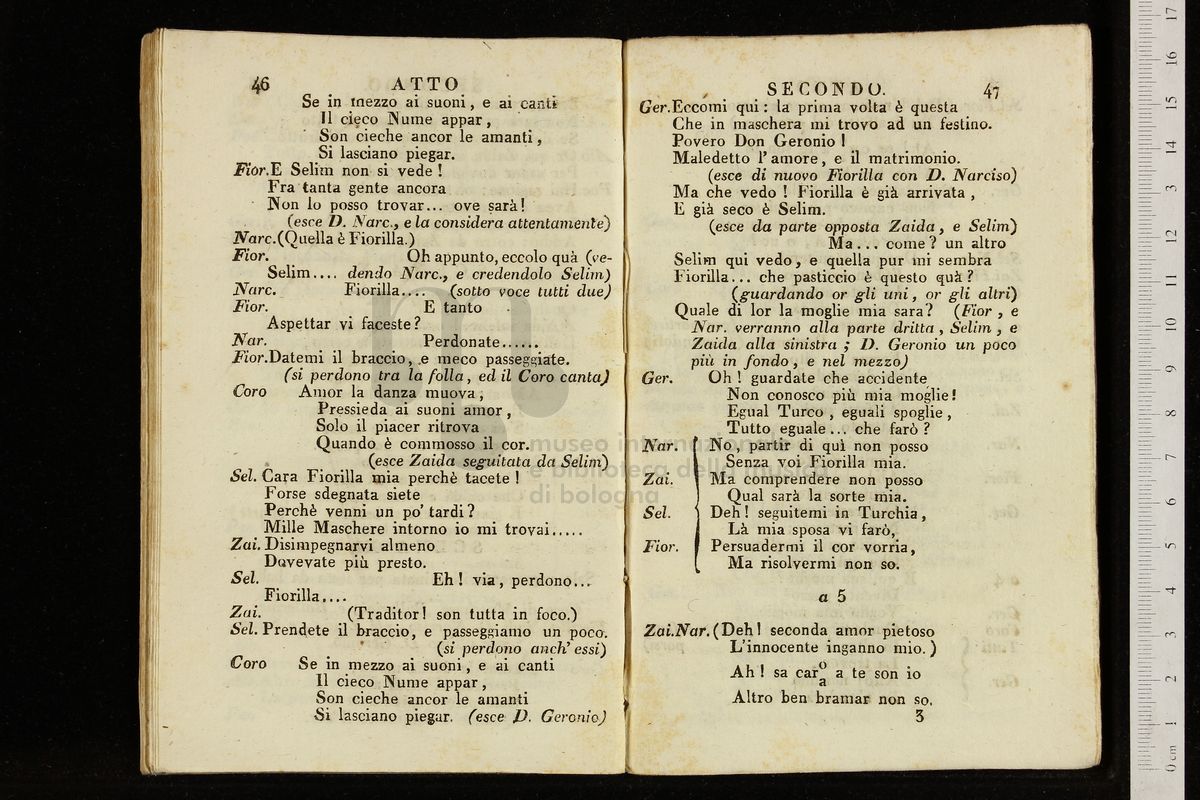 46 ATTO
Se in mezzo ai suoni, e ai canti
Il cieco Nume appar,
Son cieche ancor le amanti,
Si lasciano piegar.
Fior. E Selim non si vede!
Fra tanta gente ancora
Non lo posso trovar... ove sarà!
(esce D. Narc., e la considera attentamente)
Narc. (Quella è Fiorilla.)
Fior. Oh appunto, eccolo quà (ve-
Selim.... dendo Narc., e credendolo Selim)
Narc. Fiorilla.... (sotto voce tutti due)
Fior. E tanto
Aspettar vi faceste?
Nar. Perdonate......
Fior. Datemi il braccio, e meco passeggiate.
(si perdono tra la folla, ed il Coro canta)
Coro Amor la danza muova,
Pressieda ai suoni amor,
Solo il piacer ritrova
Quando è commosso il cor.
(esce Zaida seguitata da Selim)
Sel. Cara Fiorilla mia perchè tacete!
Forse sdegnata siete
Perchè venni un po' tardi?
Mille Maschere intorno io mi trovai.....
Zai. Disimpegnarvi almeno
Davevate più presto.
Sel. Eh! via, perdono...
Fiorilla....
Zai. (Traditor! son tutta in foco.)
Sel. Prendete il braccio, e passeggiamo un poco.
(si perdono anch' essi)
Coro Se in mezzo ai suoni, e ai canti
Il cieco Nume appar,
Son cieche ancor le amanti
Si lasciano piegar. (esce D. Geronio)
SECONDO. 47
Ger. Eccomi qui: la prima volta è questa
Che in maschera mi trovo ad un festino.
Povero Don Geronio!
Maledetto l'amore, e il matrimonio.
(esce di nuovo Fiorilla con D. Narciso)
Ma che vedo! Fiorilla è già arrivata,
E già seco è Selim.
(esce da parte opposta Zaida, e Selim)
Ma... come? un altro
Selim qui vedo, e quella pur mi sembra
Fiorilla... che pasticcio è questo quà?
(guardando or gli uni, or gli altri)
Quale di lor la moglie mia sara? (Fior, e
Nar. verranno alla parte dritta, Selim, e
Zaida alla sinistra; D. Geronio un poco
più in fondo, e nel mezzo)
Ger. Oh! guardate che accidente
Non conosco più mia moglie!
Egual Turco, eguali spoglie,
Tutto eguale... che farò?
Nar. No, partir di quì non posso
Senza voi Fiorilla mia.
Zai. Ma comprendere non posso
Qual sarà la sorte mia.
Sel. Deh! seguitemi in Turchia,
Là mia sposa vi farò,
Fior. Persuadermi il cor vorria,
Ma risolvermi non so.
a 5
Zai. Nar. (Deh! seconda amor pietoso
L'innocente inganno mio.)
Ah! sa car o a a te son io
Altro ben bramar non so.
3
museo internazionale
e biblioteca della musica
di bologna
0 cm 1 2 3 4 5 6 7 8 9 10 11 12 13 14 15 16 17